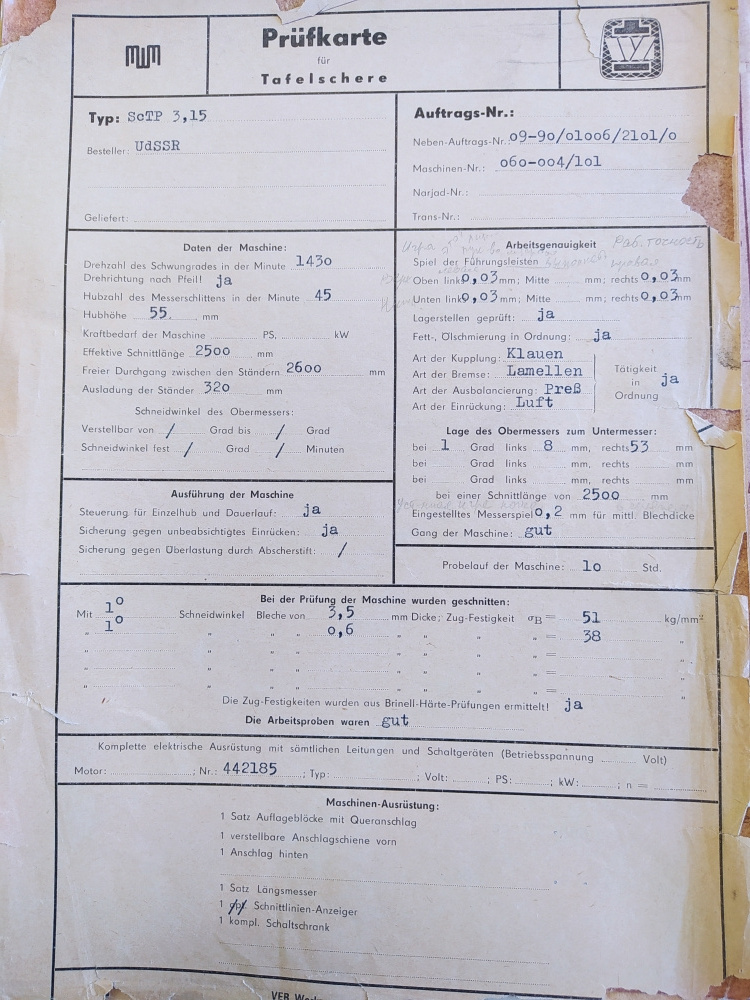 MWM
Prüfkarte
für
Tafelschere
Typ: ScTP 3,15
Besteller: UdSSR
Geliefert:
Auftrags-Nr.:
Neben-Auftrags-Nr.: o9-9o/o1oo6/21o1/o
Maschinen-Nr.: o6o-oo4/1o1
Narjad-Nr.:
Trans-Nr.:
Daten der Maschine:
Drehzahl des Schwungrades in der Minute 143o
Drehrichtung nach Pfeil! ja
Hubzahl des Messerschlittens in der Minute 45
Hubhöhe 55. mm
Kraftbedarf der Maschine PS, kW
Effektive Schnittlänge 25oo mm
Freier Durchgang zwischen den Ständern 26oo mm
Ausladung der Ständer 32o mm
Schneidwinkel des Obermessers:
Verstellbar von / Grad bis / Grad
Schneidwinkel fest / Grad / Minuten
Arbeitsgenauigkeit Раб. точность
Spiel der Führungsleisten
Oben links o,o3 mm; Mitte mm; rechts o,o3 mm
Unten links o,o3 mm; Mitte mm; rechts o,o3 mm
Lagerstellen geprüft: ja
Fett-, Ölschmierung in Ordnung: ja
Art der Kupplung: Klauen
Art der Bremse: Lamellen
Art der Ausbalancierung: Preß
Art der Einrückung: Luft
Tätigkeit
in
Ordnung
ja
Lage des Obermessers zum Untermesser:
bei 1 Grad links 8 mm, rechts 53 mm
bei Grad links mm, rechts mm
bei Grad links mm, rechts mm
bei einer Schnittlänge von 25oo mm
Eingestelltes Messerspiel o,2 mm für mittl. Blechdicke
Gang der Maschine: gut
Ausführung der Maschine
Steuerung für Einzelhub und Dauerlauf: ja
Sicherung gegen unbeabsichtigtes Einrücken: ja
Sicherung gegen Überlastung durch Abscherstift: /
Probelauf der Maschine: 1o Std.
Bei der Prüfung der Maschine wurden geschnitten:
Mit 1° Schneidwinkel Bleche von 3,5 mm Dicke; Zug-Festigkeit σB = 51 kg/mm²
" 1° " " " o,6 " " " " = 38 "
" " " " " " " " = "
" " " " " " " " = "
" " " " " " " " = "
Die Zug-Festigkeiten wurden aus Brinell-Härte-Prüfungen ermittelt! ja
Die Arbeitsproben waren gut
Komplette elektrische Ausrüstung mit sämtlichen Leitungen und Schaltgeräten (Betriebsspannung Volt)
Motor: ; Nr.: 442185 ; Typ: ; Volt: ; PS: ; kW: ; n =
Maschinen-Ausrüstung:
1 Satz Auflageblöcke mit Queranschlag
1 verstellbare Anschlagschiene vorn
1 Anschlag hinten
1 Satz Längsmesser
1 Schnittlinien-Anzeiger
1 kompl. Schaltschrank
VEB